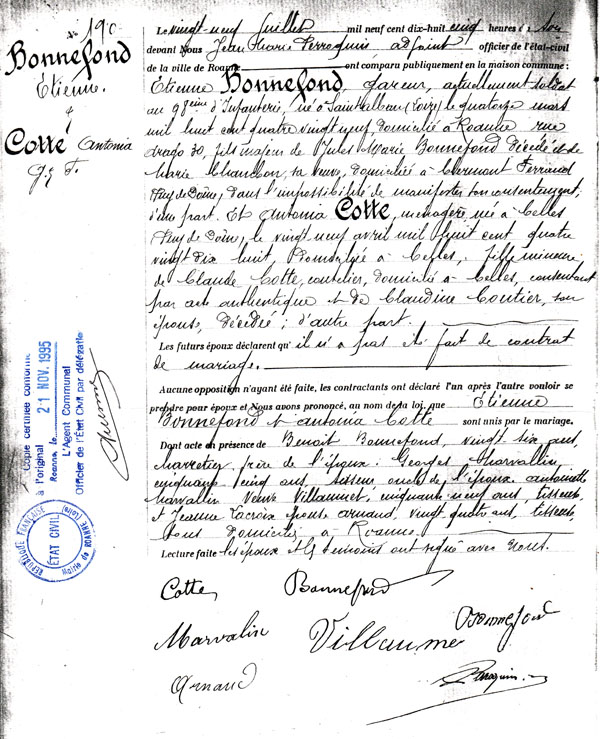 No 190
Bonnefond
Étienne.
&
Cotté Antonia
Le vingt-neuf Juillet mil neuf cent dix-huit cinq heures du soir
devant Nous Jean Marie adjoint officier de l'état-civil
de la ville de Roanne ont comparu publiquement en la maison commune :
Étienne Bonnefond, actuellement soldat
au 98ème d'Infanterie, né à Saint Alban (Loire) le quatorze mars
mil huit cent quatre vingt neuf, domicilié à Roanne rue
drago 30, fils majeur de Jules Marie Bonnefond décédé et de
Marie Chambon, sa veuve, domiciliée à Clermont Ferrand
(Puy de Dôme), dans l'impossibilité de manifester son consentement,
d'une part. Et Antonia Cotte, ménagère née à Celles
(Puy de Dôme), le vingt neuf avril mil huit cent quatre
vingt dix huit, domiciliée à Celles, fille mineure
de Claude Cotte, coutelier, domicilié à Celles, consentant
par acte authentique et de Claudine Coutier, son
épouse, décédée ; d'autre part.
Les futurs époux déclarent qu'il n'a pas été fait de contrat
de mariage.
Aucune opposition n'ayant été faite, les contractants ont déclaré l'un après l'autre vouloir se
prendre pour époux et Nous avons prononcé, au nom de la loi, que Étienne
Bonnefond et Antonia Cotte sont unis par le mariage.
Dont acte en présence de Benoît Bonnefond, vingt six ans,
frère de l'époux : Georges Marvallin,
cinquante cinq ans, oncle de l'époux, Antoinette
Marvallin Veuve Villaumet, cinquante neuf ans, tisseuse,
et Jeanne Lacroix épouse Arnaud, vingt quatre ans, tisseuse,
tous domiciliés à Roanne.
Lecture faite les époux et les témoins ont signé avec Nous.
Cotte Bonnefond
Marvalin Villaume Bonnefond
Arnaud
Copie certifiée conforme
à l'original
Roanne, le 21 NOV. 1995
L'Agent Communal
Officier de l'État Civil par délégation
RÉPUBLIQUE FRANÇAISE (Loire)
ÉTAT CIVIL
Mairie de ROANNE